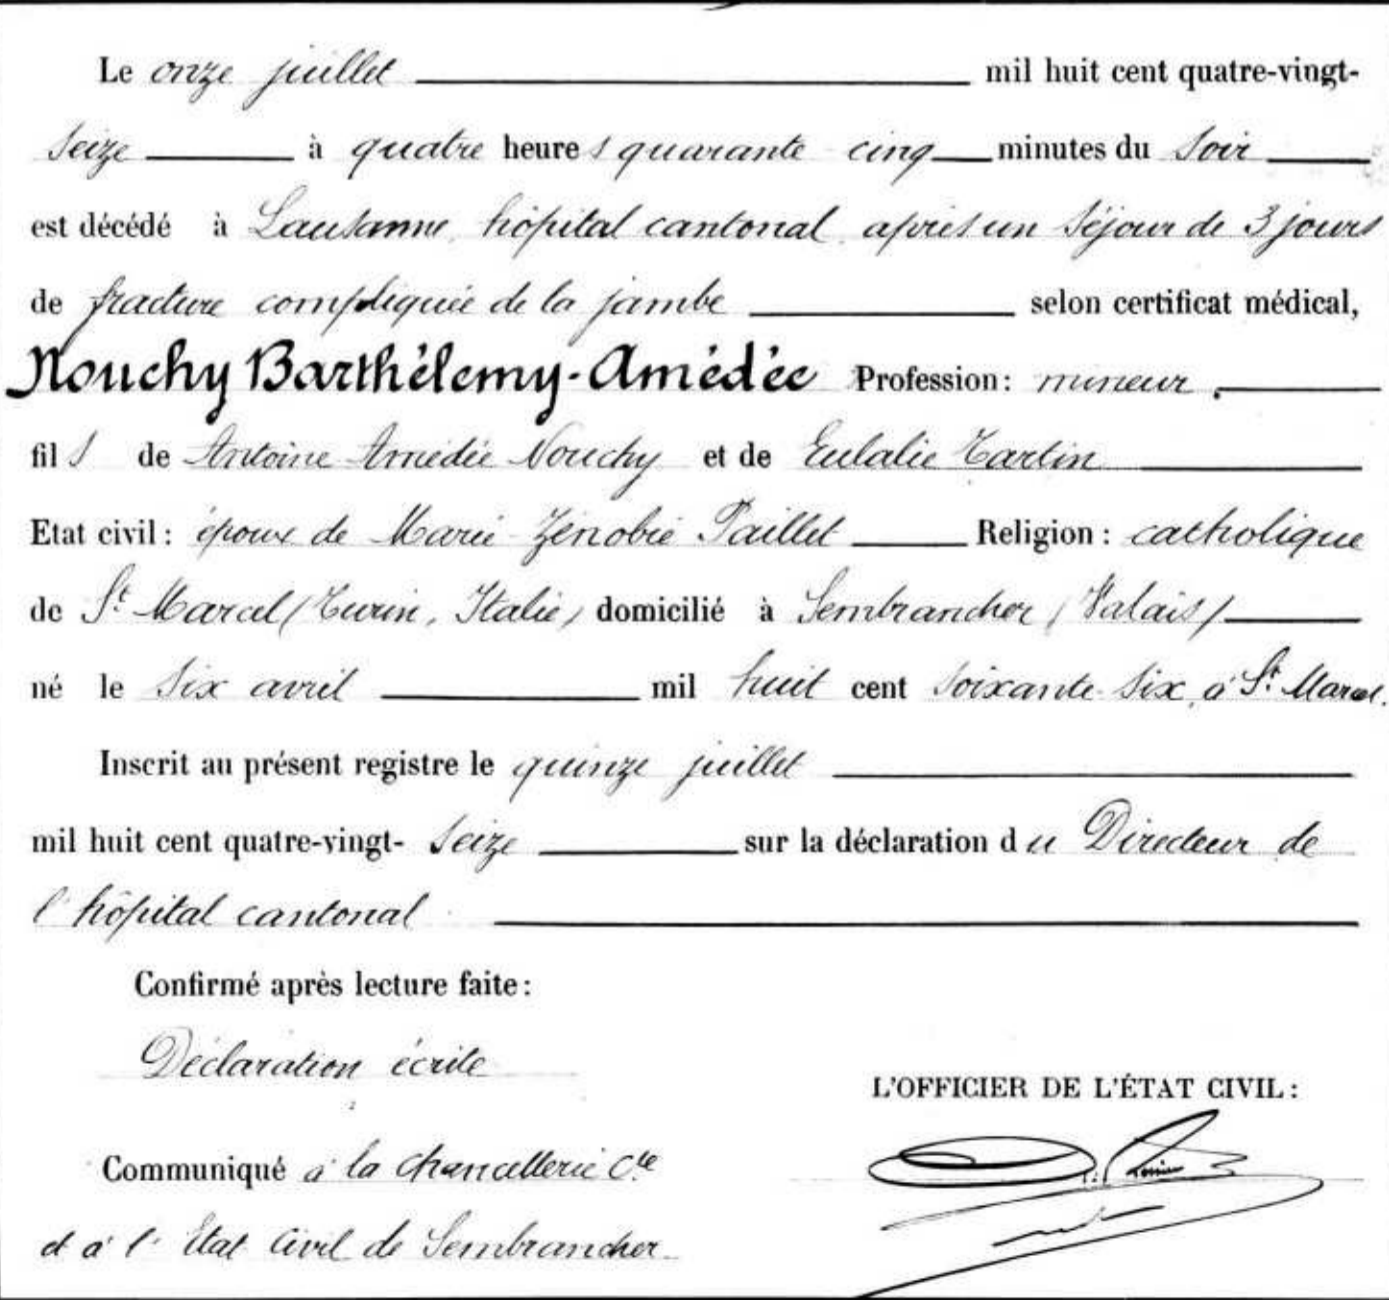 Le onze juillet mil huit cent quatre-vingt-
seize à quatre heures quarante cinq minutes du soir
est décédé à Lausanne, hôpital cantonal, après un séjour de 3 jours
de fracture compliquée de la jambe selon certificat médical,
Nouchy Barthélemy-Amédée Profession: mineur.
fils de Antoine Amédée Nouchy et de Eulalie Tartin
Etat civil: époux de Marie-Zénobie Paillet Religion: catholique
de St Marcel (Turin, Italie) domicilié à Sembrancher (Valais)
né le six avril mil huit cent soixante-six, à St Marcel.
Inscrit au présent registre le quinze juillet
mil huit cent quatre-vingt-seize sur la déclaration du Directeur de
l'hôpital cantonal
Confirmé après lecture faite:
Déclaration écrite
L'OFFICIER DE L'ÉTAT CIVIL:
Communiqué à la Chancellerie Cle
et à l'Etat Civil de Sembrancher